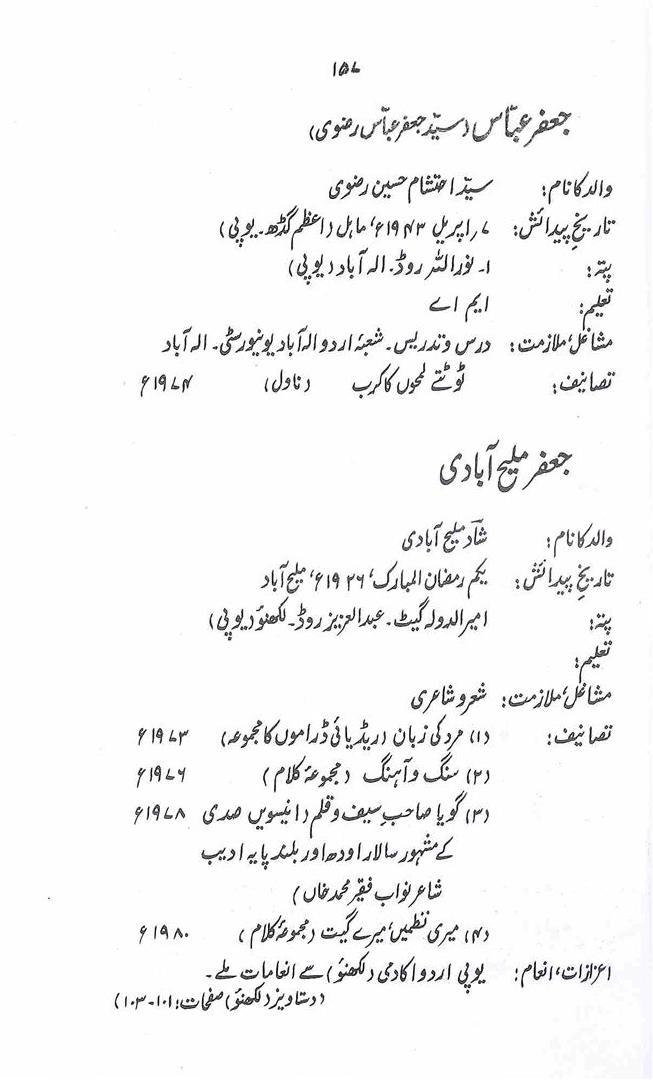 ۱۵۷
جعفر عباس (سیّد جعفر عباس رضوی)
والد کا نام: سیّد احتشام حسین رضوی
تاریخِ پیدائش: ۷؍اپریل ۱۹۴۳ء، ماہل (اعظم گڈھ۔ یوپی)
پتہ: ۱۔ نور اللہ روڈ۔ الہ آباد (یوپی)
تعلیم: ایم اے
مشاغل، ملازمت: درس و تدریس۔ شعبۂ اردو الہ آباد یونیورسٹی۔ الہ آباد
تصانیف: ٹوٹتے لمحوں کا کرب (ناول) ۱۹۷۴ء
جعفر ملیح آبادی
والد کا نام: شاد ملیح آبادی
تاریخِ پیدائش: یکم رمضان المبارک، ۱۹۲۶ء، ملیح آباد
پتہ: امیر الدولہ گیٹ۔ عبدالعزیز روڈ۔ لکھنؤ (یوپی)
تعلیم:
مشاغل، ملازمت: شعر و شاعری
تصانیف: (۱) مرد کی زبان (ریڈیائی ڈراموں کا مجموعہ) ۱۹۷۳ء
(۲) سنگ و آہنگ (مجموعۂ کلام) ۱۹۷۶ء
(۳) گویا صاحبِ سیف و قلم (انیسویں صدی ۱۹۷۸ء
کے مشہور سالار اودھ اور بلند پایہ ادیب
شاعر نواب فقیر محمد خاں)
(۴) میری نظمیں، میرے گیت (مجموعۂ کلام) ۱۹۸۰ء
اعزازات، انعام: یوپی اردو اکادمی (لکھنؤ) سے انعامات ملے۔
(دستاویز (لکھنؤ) صفحات: ۱۰۱-۱۰۳)